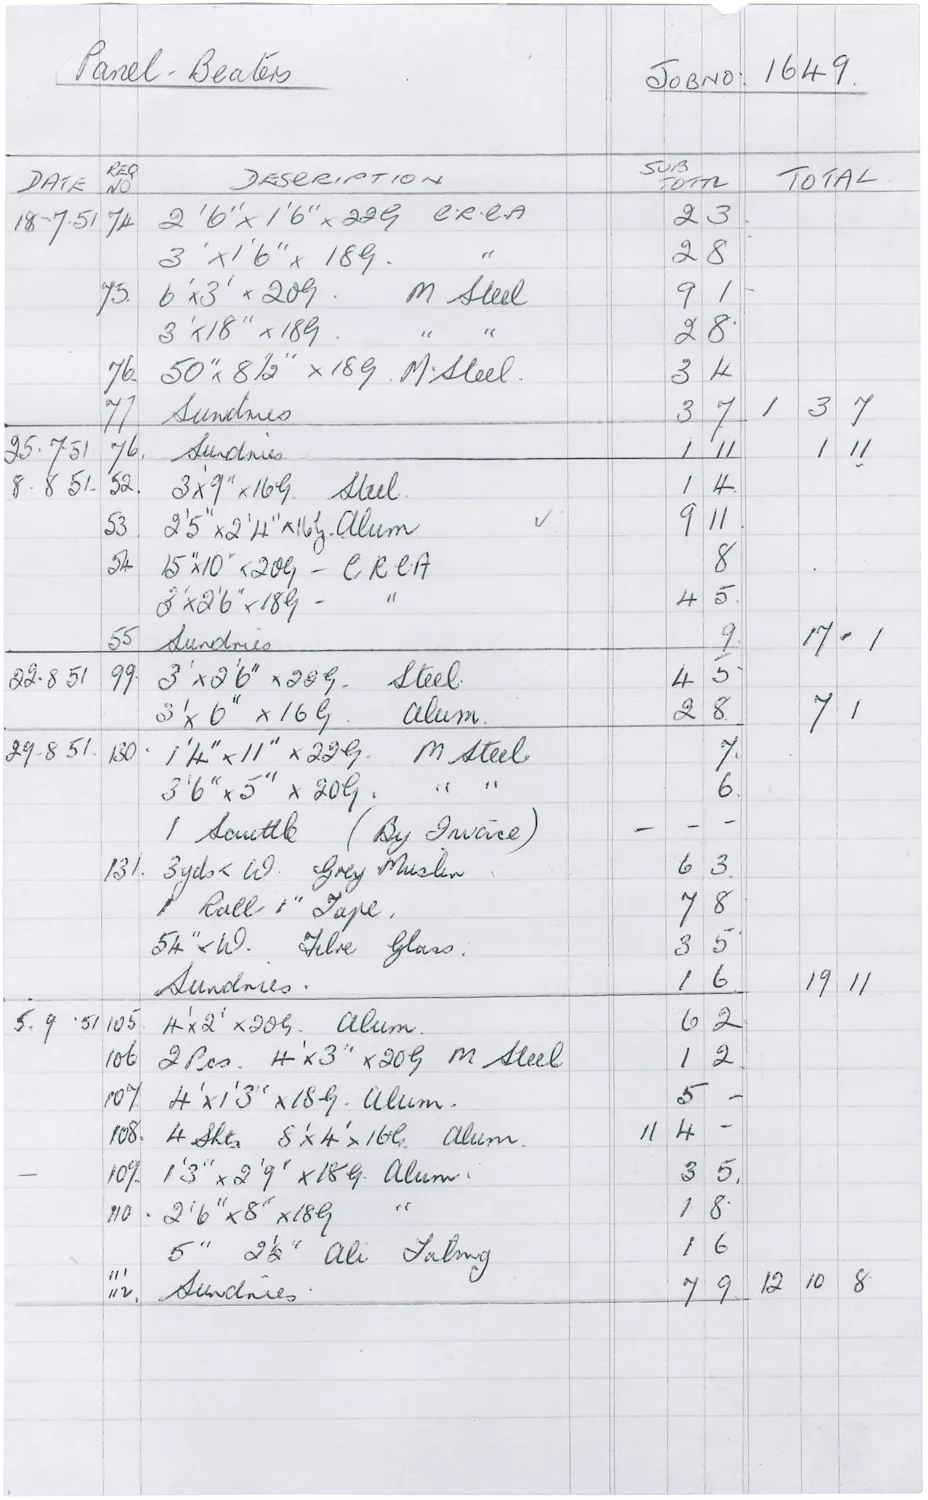 Panel-Beaters JOB NO: 1649.
DATE REQ NO DESCRIPTION SUB TOTTL TOTAL
18-7-51 74 2'6" x 1'6" x 22G C.R.C.A 2 3
3' x 1'6" x 18G. " 2 8
75. 6' x 3' x 20G. M Steel 9 1
3' x 18" x 18G. " " 2 8
76. 50" x 8½" x 18G. M. Steel. 3 4
77 Sundries 3 7 1 3 7
25.7.51 76. Sundries 1 11 1 11
8.8.51. 52. 3' x 9" x 16G. Steel. 1 4.
53 2'5" x 2'4" x 16G. Alum ✓ 9 11
54 15" x 10" x 20G - C R C A 8
3' x 2'6" x 18G - " 4 5.
55 Sundries 9. 17 - 1
22.8 51 99. 3' x 2'6" x 22G. Steel. 4 5
3' x 6" x 16G. Alum. 2 8 7 1
29.8 51. 130. 1'4" x 11" x 22G. M Steel. 7.
3'6" x 5" x 20G. " " 6.
1 Scuttle (By Invoice) - - -
131. 3yds x W. Grey Muslin 6 3.
1 Roll 1" Tape. 7 8
54" x W. Fibre Glass. 3 5
Sundries. 1 6 19 11
5.9.51 105. 4' x 2' x 20G. Alum. 6 2
106 2 Pcs. 4' x 3" x 20G M Steel 1 2
107 4' x 1'3" x 18G. Alum. 5 -
108. 4 Shts 8' x 4' x 16G. Alum. 11 4 -
- 109. 1'3" x 2'9" x 18G. Alum. 3 5.
110. 2'6" x 8" x 18G " 1 8
5" 2½" Ali 1 6
111
112. Sundries. 7 9. 12 10 8